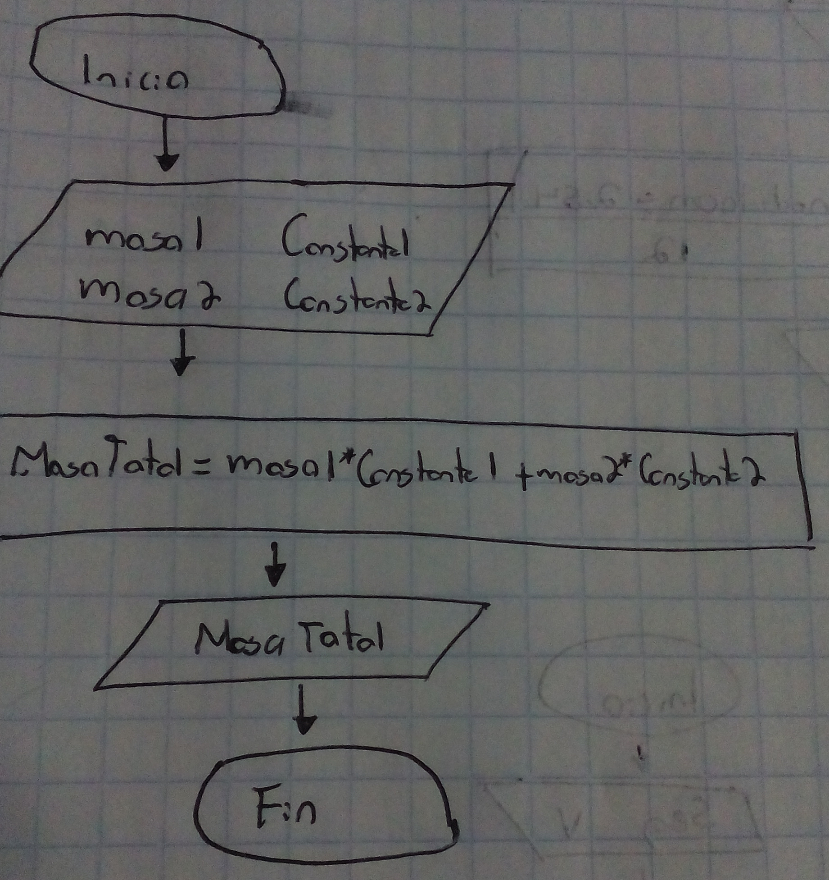 Inicio
masa1 Constante1
masa2 Constante2
MasaTatal = masa1*Constante1 + masa2*Constante2
Masa Tatal
Fin